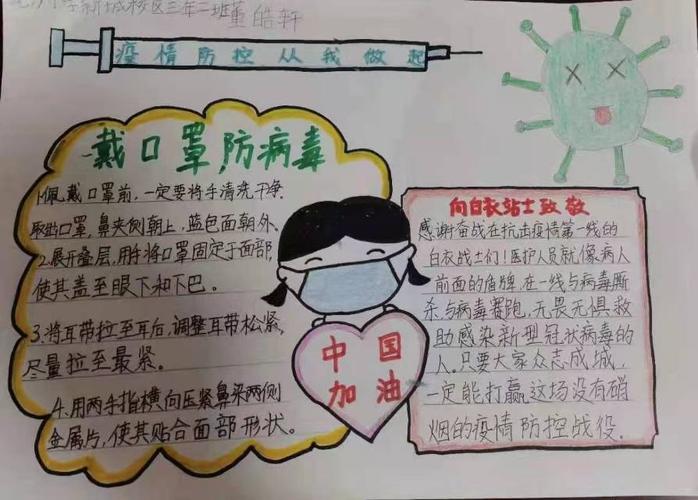 学新城校区三年二班董皓轩
疫情防控从我做起
戴口罩,防病毒
1.佩戴口罩前,一定要将手清洗干净.
取出口罩,鼻夹侧朝上,蓝色面朝外.
2.展开叠层,用手将口罩固定于面部,
使其盖至眼下和下巴。
3.将耳带拉至耳后,调整耳带松紧,
尽量拉至最紧。
4.用两手指横向压紧鼻梁两侧
金属片,使其贴合面部形状。
中国
加油
向白衣战士致敬
感谢奋战在抗击疫情第一线的
白衣战士们!医护人员就像病人
前面的盾牌,在一线与病毒厮
杀,与病毒赛跑,无畏无惧救
助感染新型冠状病毒的
人。只要大家众志成城,
一定能打赢这场没有硝
烟的疫情防控战役.